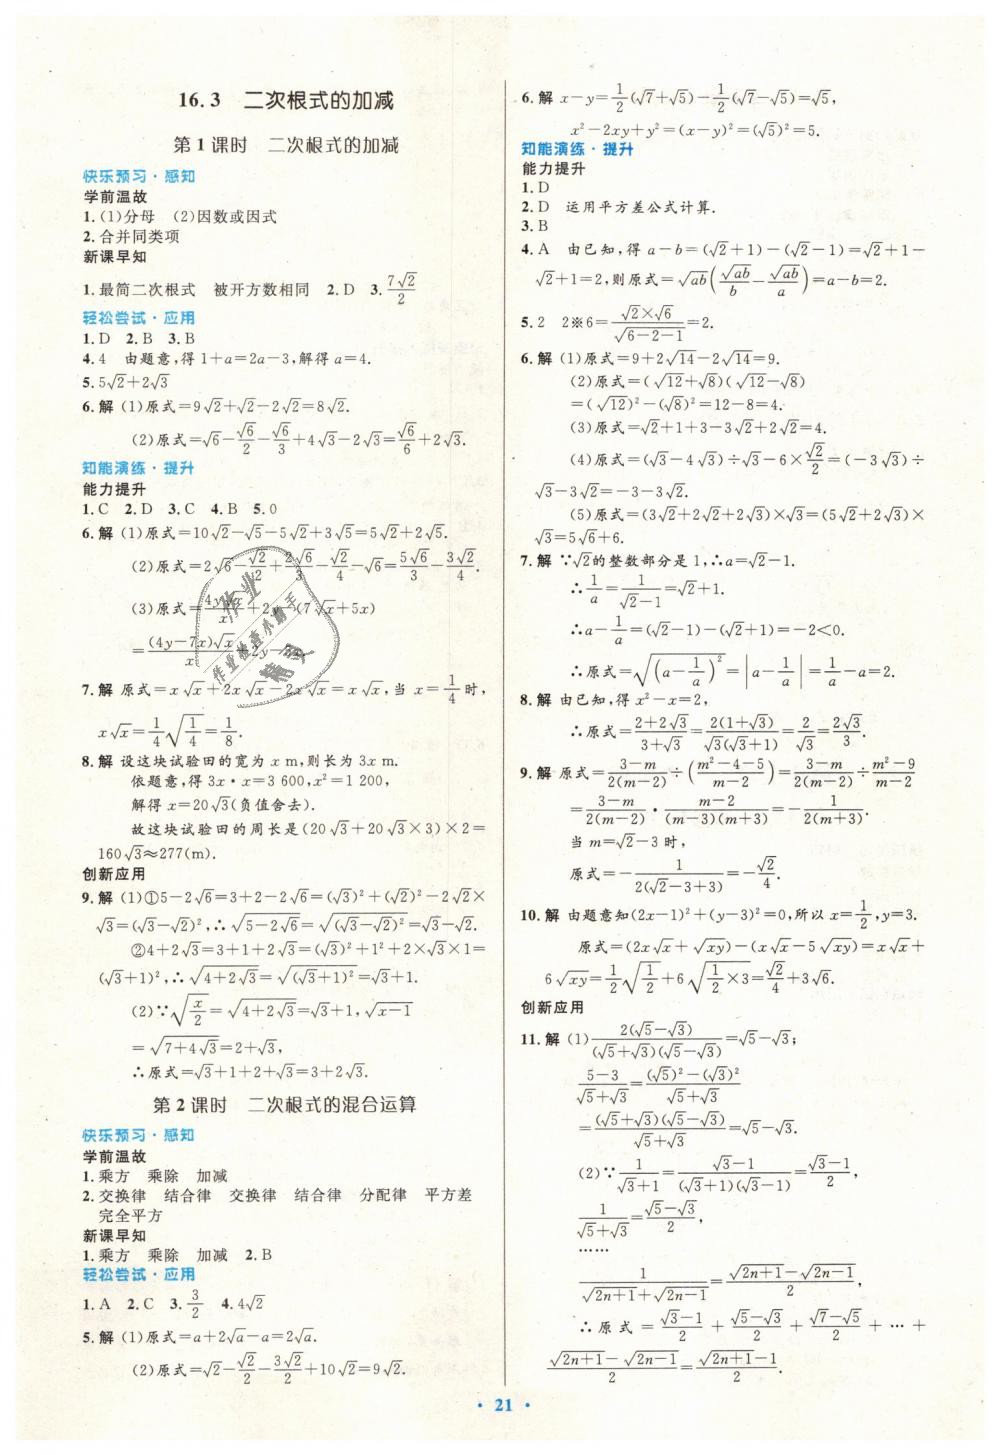 16.3 二次根式的加减
第1课时 二次根式的加减
快乐预习·感知
学前温故
1.(1)分母 (2)因数或因式
2.合并同类项
新课早知
1.最简二次根式 被开方数相同 2.D 3.7√2/2
轻松尝试·应用
1.D 2.B 3.B
4.4 由题意,得1+a=2a-3,解得a=4.
5.5√2+2√3
6.解 (1)原式=9√2+√2-2√2=8√2.
(2)原式=√6-√6/2-√6/3+4√3-2√3=√6/6+2√3.
知能演练·提升
能力提升
1.C 2.D 3.C 4.B 5.0
6.解 (1)原式=10√2-√5-5√2+3√5=5√2+2√5.
(2)原式=2√6-√2/2+2√6/3-√2/4-√6=5√6/3-3√2/4.
(3)原式=
(7√x+5x)
=(4y-7x)√x/x
7.解 原式=x√x+2x√x-2x√x=x√x,当x=1/4时,
x√x=1/4√(1/4)=1/8.
8.解 设这块试验田的宽为x m,则长为3x m.
依题意,得3x·x=3 600,x²=1 200,
解得x=20√3(负值舍去).
故这块试验田的周长是(20√3+20√3×3)×2=
160√3≈277(m).
创新应用
9.解 (1)①5-2√6=3+2-2√6=(√3)²+(√2)²-2√2×
√3=(√3-√2)²,∴√(5-2√6)=√((√3-√2)²)=√3-√2.
②4+2√3=3+1+2√3=(√3)²+1²+2×√3×1=
(√3+1)²,∴√(4+2√3)=√((√3+1)²)=√3+1.
(2)∵√(x/2)=√(4+2√3)=√3+1,√(x-1)
=√(7+4√3)=2+√3,
∴原式=√3+1+2+√3=3+2√3.
第2课时 二次根式的混合运算
快乐预习·感知
学前温故
1.乘方 乘除 加减
2.交换律 结合律 交换律 结合律 分配律 平方差
完全平方
新课早知
1.乘方 乘除 加减 2.B
轻松尝试·应用
1.A 2.C 3.3/2 4.4√2
5.解 (1)原式=a+2√a-a=2√a.
(2)原式=√2-√2/2-3√2/2+10√2=9√2.
6.解 x-y=1/2(√7+√5)-1/2(√7-√5)=√5,
x²-2xy+y²=(x-y)²=(√5)²=5.
知能演练·提升
能力提升
1.D
2.D 运用平方差公式计算.
3.B
4.A 由已知,得a-b=(√2+1)-(√2-1)=√2+1-
√2+1=2,则原式=√ab(√ab/b-√ab/a)=a-b=2.
5.2 2※6=√2×√6/√(6-2-1)=2.
6.解 (1)原式=9+2√14-2√14=9.
(2)原式=(√12+√8)(√12-√8)
=(√12)²-(√8)²=12-8=4.
(3)原式=√2+1+3-3√2+2√2=4.
(4)原式=(√3-4√3)÷√3-6×√2/2=(-3√3)÷
√3-3√2=-3-3√2.
(5)原式=(3√2+2√2+2√3)×√3=(5√2+2√3)×
√3=5√6+6.
7.解 ∵√2的整数部分是1,∴a=√2-1.
∴1/a=1/(√2-1)=√2+1.
∴a-1/a=(√2-1)-(√2+1)=-2<0.
∴原式=√((a-1/a)²)=|a-1/a|=1/a-a=2.
8.解 由已知,得x²-x=2,
∴原式=(2+2√3)/(3+√3)=2(1+√3)/(√3(√3+1))=2/√3=2√3/3.
9.解 原式=(3-m)/(2(m-2))÷((m²-4-5)/(m-2))=(3-m)/(2(m-2))÷(m²-9)/(m-2)
=(3-m)/(2(m-2))·(m-2)/((m-3)(m+3))=-1/(2(m+3)).
当m=√2-3时,
原式=-1/(2(√2-3+3))=-√2/4.
10.解 由题意知(2x-1)²+(y-3)²=0,所以x=1/2,y=3.
原式=(2x√x+√xy)-(x√x-5√xy)=x√x+
6√xy=1/2√(1/2)+6√(1/2×3)=√2/4+3√6.
创新应用
11.解 (1)2(√5-√3)/((√5+√3)(√5-√3))=√5-√3;
(5-3)/(√5+√3)=((√5)²-(√3)²)/(√5+√3)
=(√5+√3)(√5-√3)/(√5+√3)=√5-√3.
(2)∵1/(√3+1)=(√3-1)/((√3+1)(√3-1))=(√3-1)/2,
1/(√5+√3)=(√5-√3)/2,
……
1/(√(2n+1)+√(2n-1))=(√(2n+1)-√(2n-1))/2,
∴原式=(√3-1)/2+(√5-√3)/2+(√7-√5)/2+…+
(√(2n+1)-√(2n-1))/2=(√(2n+1)-1)/2.
·21·